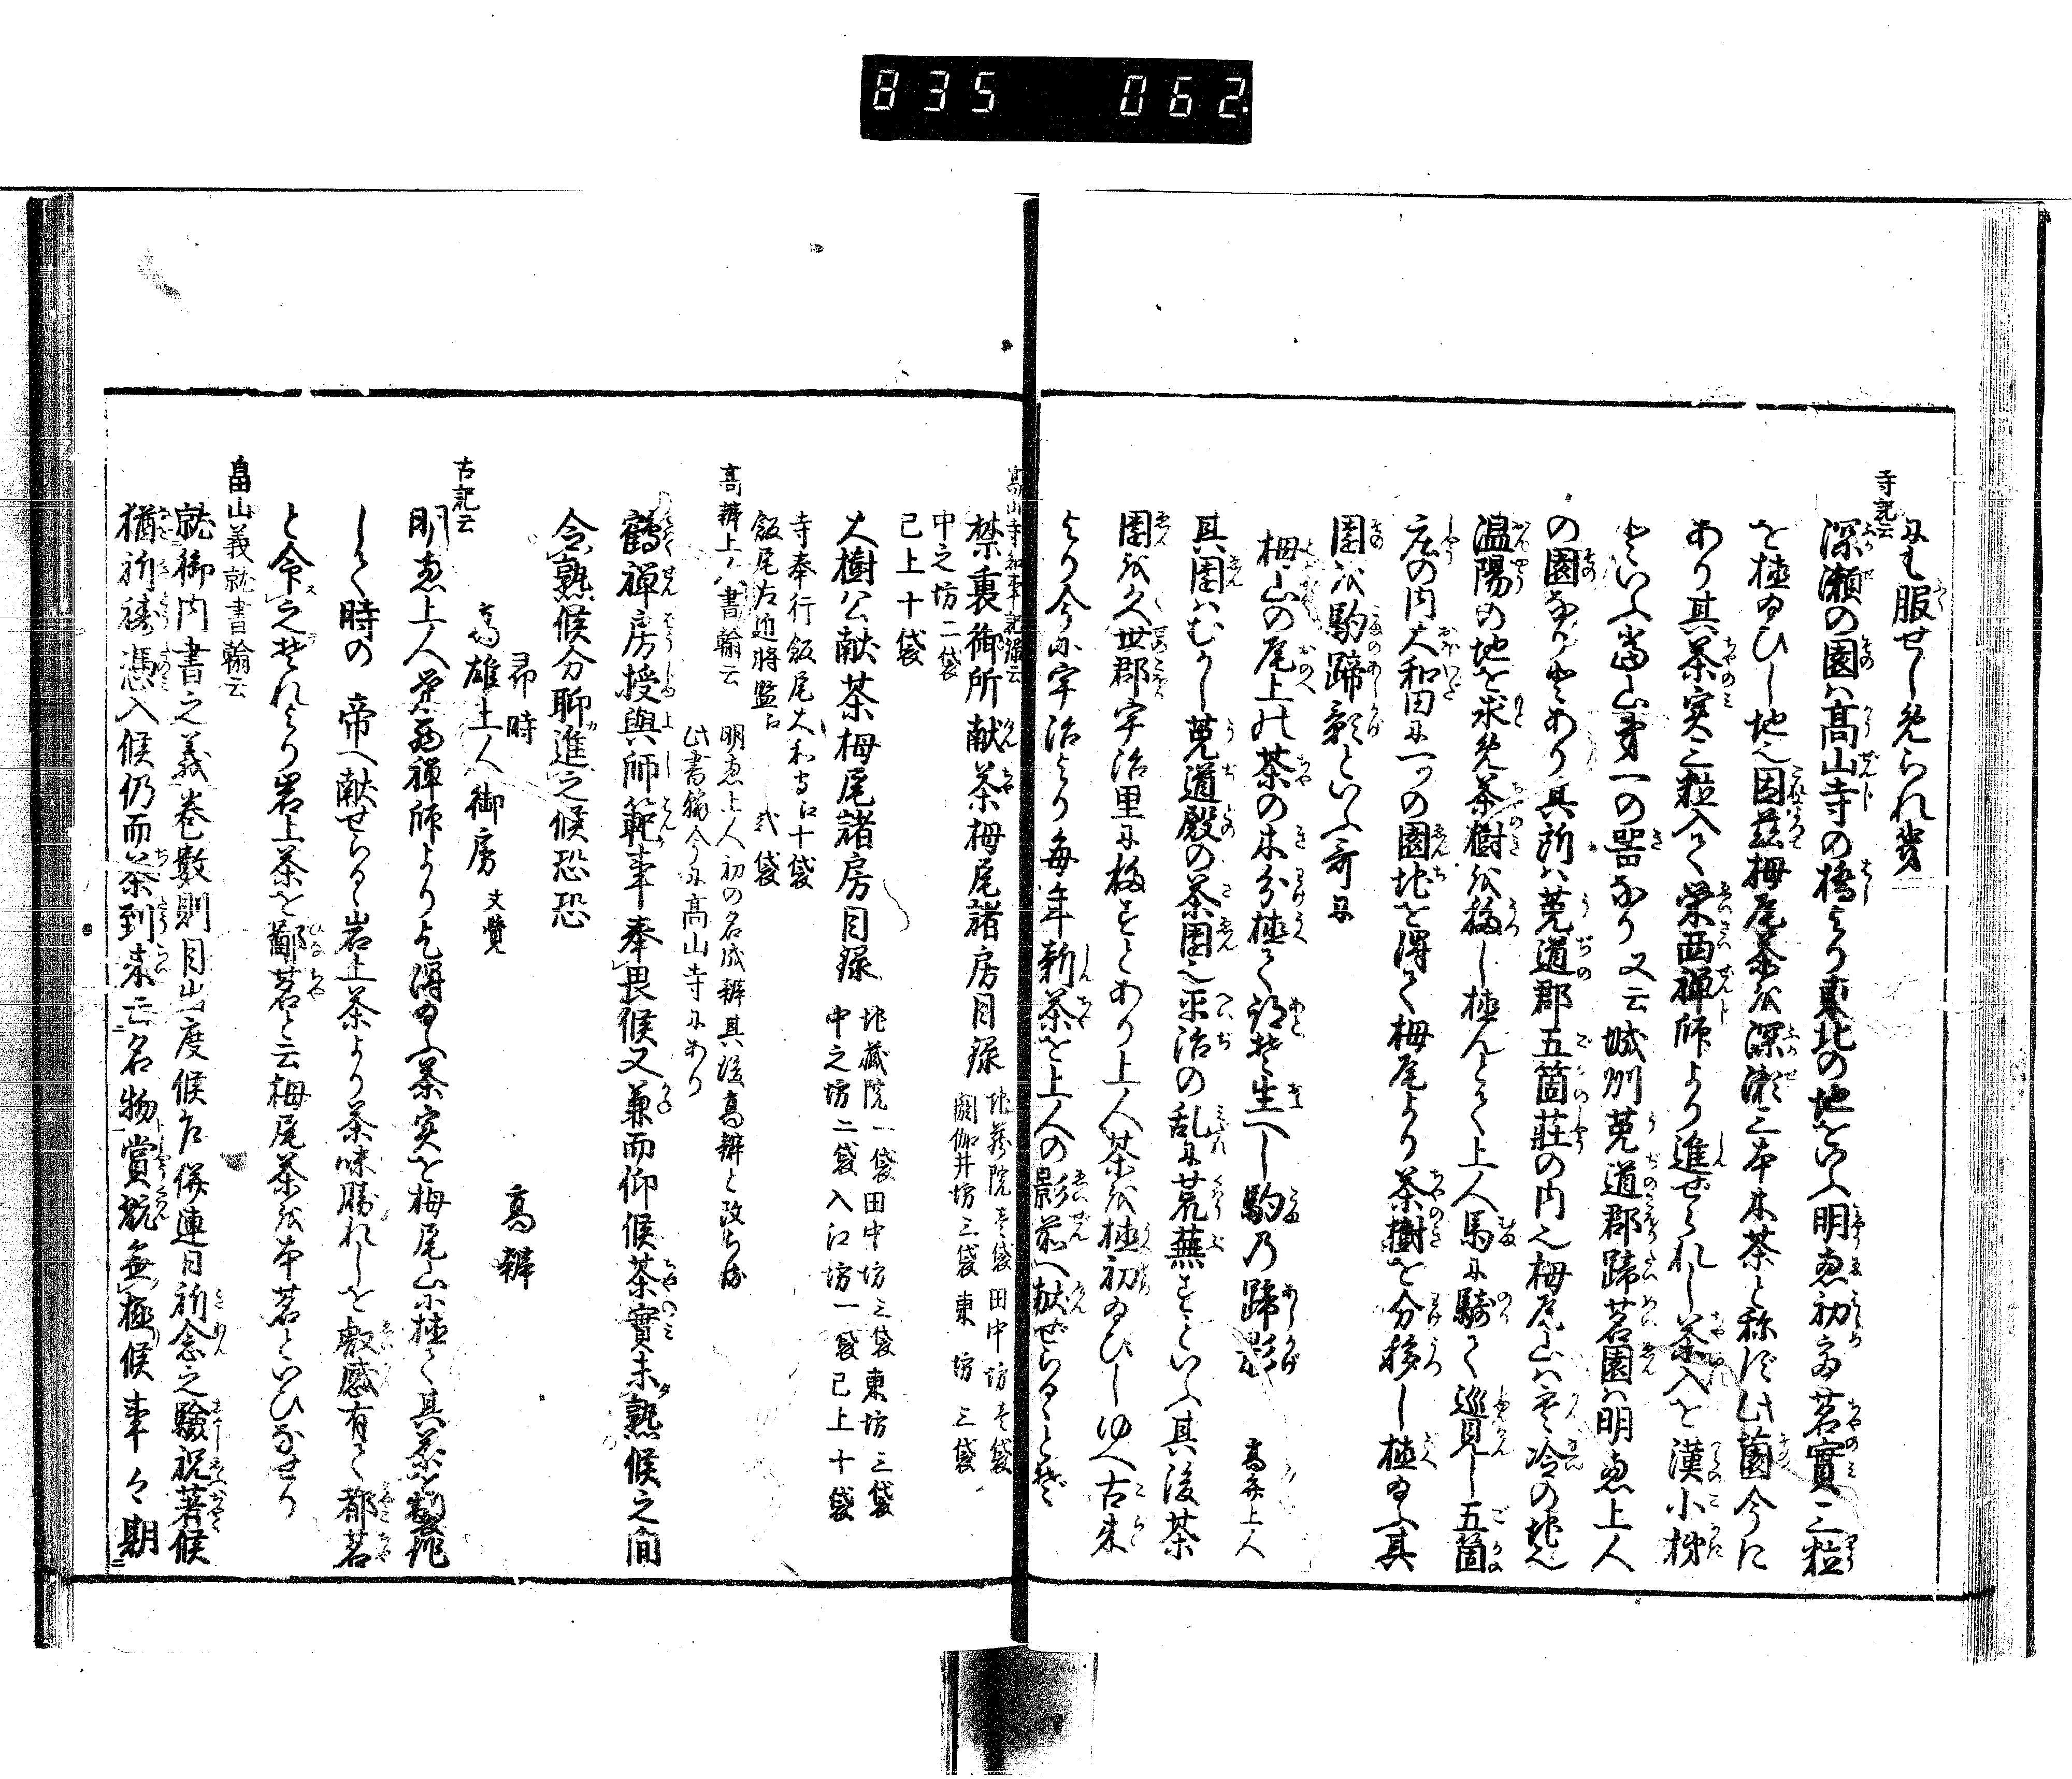 835 062
にも服せしめられ畢
寺記云
深瀬の園は高山寺の橋より東北の地をいふ明恵初て茗實三粒
を植給ひし地也因茲栂尾茶を深瀬三本木茶と称ず此園今に
あり其茶実三粒入て栄西禅師より進ぜられし茶入を漢小柿
といふ當山第一の什器なり 又云 城州莵道郡蹄茗園は明恵上人
の園なりとあり其所は莵道郡五箇荘の内也栂尾山は寒冷の地也
温陽の地を求め茶樹を移し植んとて上人馬に騎て巡見し五箇
庄の内大和田に一つの園地を得て栂尾より茶樹を分移し植給ふ其
園を駒蹄影といふ哥に
栂山の尾上の茶の木分植て跡ぞ生べし駒乃蹄影 高弁上人
其園はむかし莵道殿の茶園也平治の乱に荒蕪すといふ其後茶
園を久世郡宇治里に移すとあり上人茶を植初給ひしゆへ古来
より今に宇治より毎年新茶を上人の影前へ献ぜらるゝとぞ
高山寺知事記録云
禁裏御所献茶栂尾諸房目録 地蔵院壱袋 田中坊壱袋
閼伽井坊三袋 東坊三袋
中之坊二袋
已上十袋
大樹公献茶栂尾諸房目録 地蔵院一袋 田中坊三袋 東坊三袋
中之坊二袋 入江坊一袋 已上十袋
寺奉行飯尾大和守江十袋
飯尾左近将監江 弐袋
高辨上人書翰云 明恵上人初の名成辨其後高辨と改らる
此書翰今に高山寺にあり
鶴禅房授與師範事奉畏候又兼而仰候茶實未熟候之間
令熟候分聊進之候恐恐
昴時 高辨
高雄上人御房 文覺
古記云
明恵上人栄西禅師より乞得給ふ茶実を栂尾山に植て其茶を製作
して時の 帝へ献せらる岩上茶より茶味勝れしを叡感有て都茗
と令之それより岩上茶を鄙茗と云栂尾茶を本茗といひなせり
畠山義就書翰云
就御内書之義巻数則目出度候弥連日祈念之驗祝著候
猶祈祷憑入候仍而茶到来云名物賞翫無極候事々期